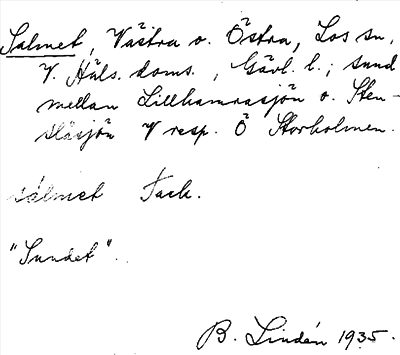 Salmet, Västra o. Östra, Los sn,
V. Häls. doms., Gävl. l.; sund
mellan Lillhamrasjön o. Sten-
slåsjön V resp. Ö Storholmen.
sálmet Tack.
"Sundet".
B. Lindén 1935.